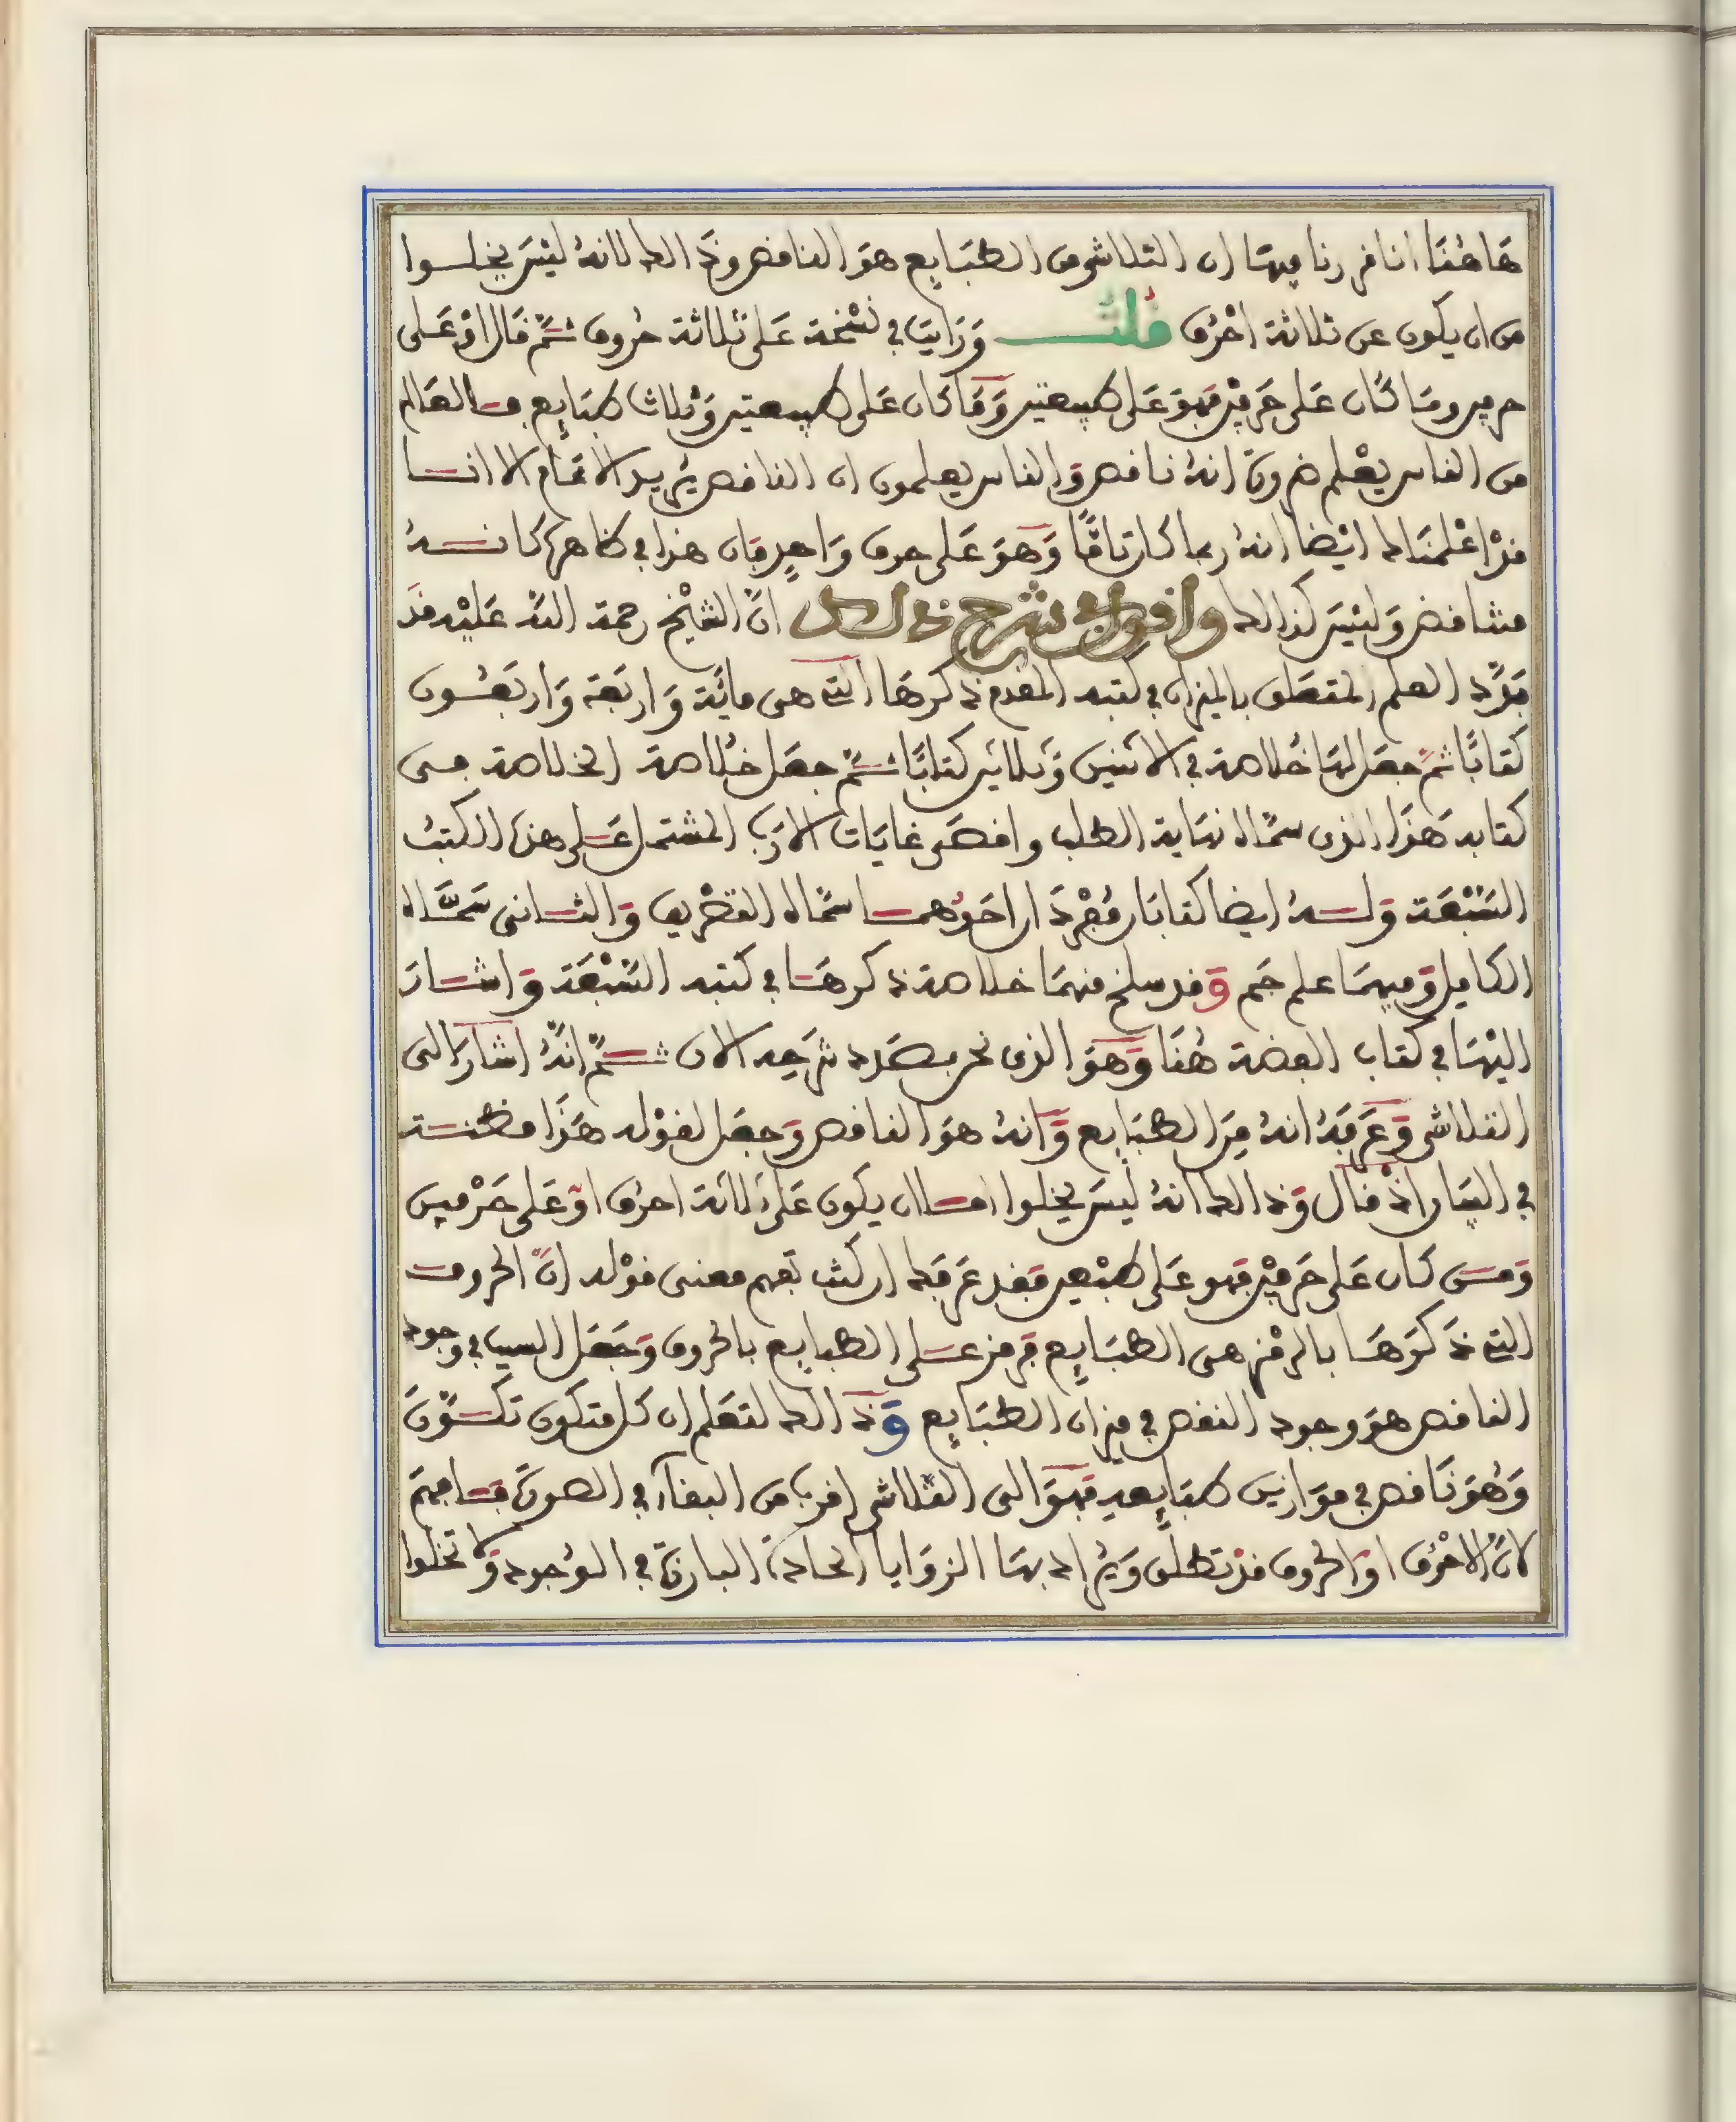 هَاهُنَا انا قررنا فيهَا ان المتلاشى من الطبَايِع هوَ الناقص وذَلك لانهُ ليْسَ يخلوا
من ان يكون عن ثلاثة احْرُف قُلتُ وَرَايتَ في نسْخة عَلى ثلاثة حُروف ثمَّ قال اوْ عَلى
حرفين ومَا كَان عَلى حَرفيْن فهوَ عَلى طبيعتين وَمَا كان عَلى طبيعتين وَثلاث طبَايِع فالعَالم
من الناس يعْلم ضرورة انهُ ناقص وَالناس يعلمون ان الناقص يُريد الاتمَام الا انا
قدْ اعْلمنَاك ايْضا انهُ ربما كان تامًّا وَهوَ على حرف وَاحِد فان هذا في ظاهره كانهُ
متناقض وَليْسَ كذالك واقول في شرح ذلك انَّ الشيْخ رحمة اللهِ عَليْه قدْ
فرَّد العلم المتعَلق بالميزان في كتبه المقدم ذكرهَا التي هي مائَة وَاربَعة وَاربَعُون
كتابًا ثمَّ جعَل لهَا خُلاصة في الاثنين وَثلاثين كتابًا ثمَّ جعَل خُلاصة الخلاصة في
كتابه هَذا الذى سمَّاه نهَاية الطلب واقصَى غايَات الارَب المشتمل عَلى هذه الكتبُ
السَّبْعَة وَلهُ ايضا كتابَان مُفْردَان احَدُهما سَمَّاه التصْريف وَالثانى سَمَّاه
الكامِل وَفيهمَا علم جَم وَقد سلخ منهمَا خلاصة ذكرهَا في كتبه السَّبْعَة وَاشارَ
اليْهَا في كتاب الفضة هُنَا وَهوَ الذى نحن بصَدد شرْحِه الان ثمَّ انَّهُ اشارَ الى
المتلاشى وَعَرفهُ انهُ مِنَ الطبَايع وَانهُ هوَ الناقص وَجعَل لقوْله هَذا مظنة
في البيَان اذْ قال وَذالك انهُ ليْسَ يخلوا امَا ان يكون عَلى ثلاثة احرُف اوْ عَلى حَرْفين
وَمَن كان عَلى حَرفيْن فهو عَلى طبْعين فقد عَرفك ان كنت تفهم معنى قوْله انَّ الحروف
التي ذكَرَهَا بالرمْز هى الطبَايِع فرمز على الطبايع بالحروف وَجَعَل السبب في وجود
الناقص هوَ وجود النقص في ميزان الطبَايع وَذَالك لتعْلم ان كل متكون تكوَّنَ
وَهُوَ ناقص في مَوازين طبايعه فهوَ الى المتلاشى اقرب من البقآء في الصورة فافهمْ
لانَّ الاحْرُف او الحروف قدْ تطلق وَيُرَاد بهَا الزوَايا الحادة البارزة في الوُجود وَلا تخلوا